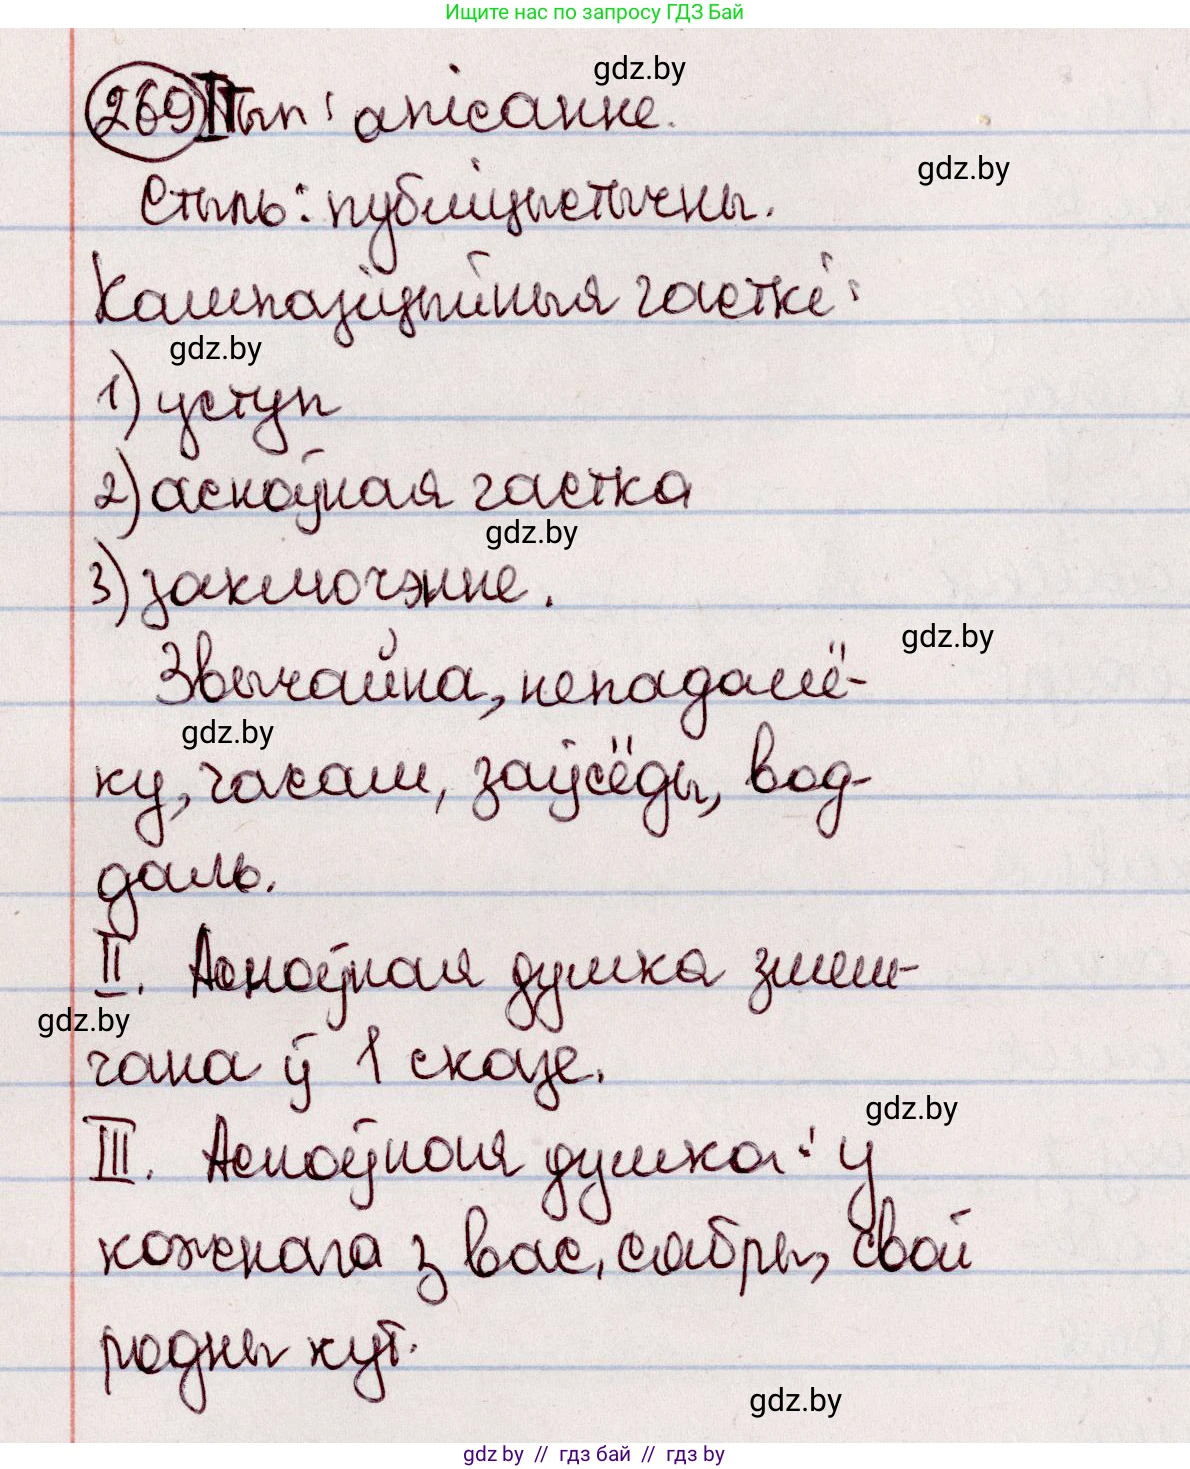 Ищите нас по запросу ГДЗ Бай
gdz.by
269 I Тып: апісанне.
gdz.by
Стыль: публіцыстычны.
Кампазіцыйныя часткі:
gdz.by
1) уступ
2) асноўная частка
gdz.by
3) заключэнне.
gdz.by
Звычайна, непадалё-
gdz.by
ку, часам, заўсёды, вод-
даль.
II. Асноўная думка змеш-
gdz.by
чана ў 1 сказе.
gdz.by
III. Асноўная думка: у
кожнага з вас, сябры, свой
родны кут.
gdz.by
gdz by // гдз бай // гдз by